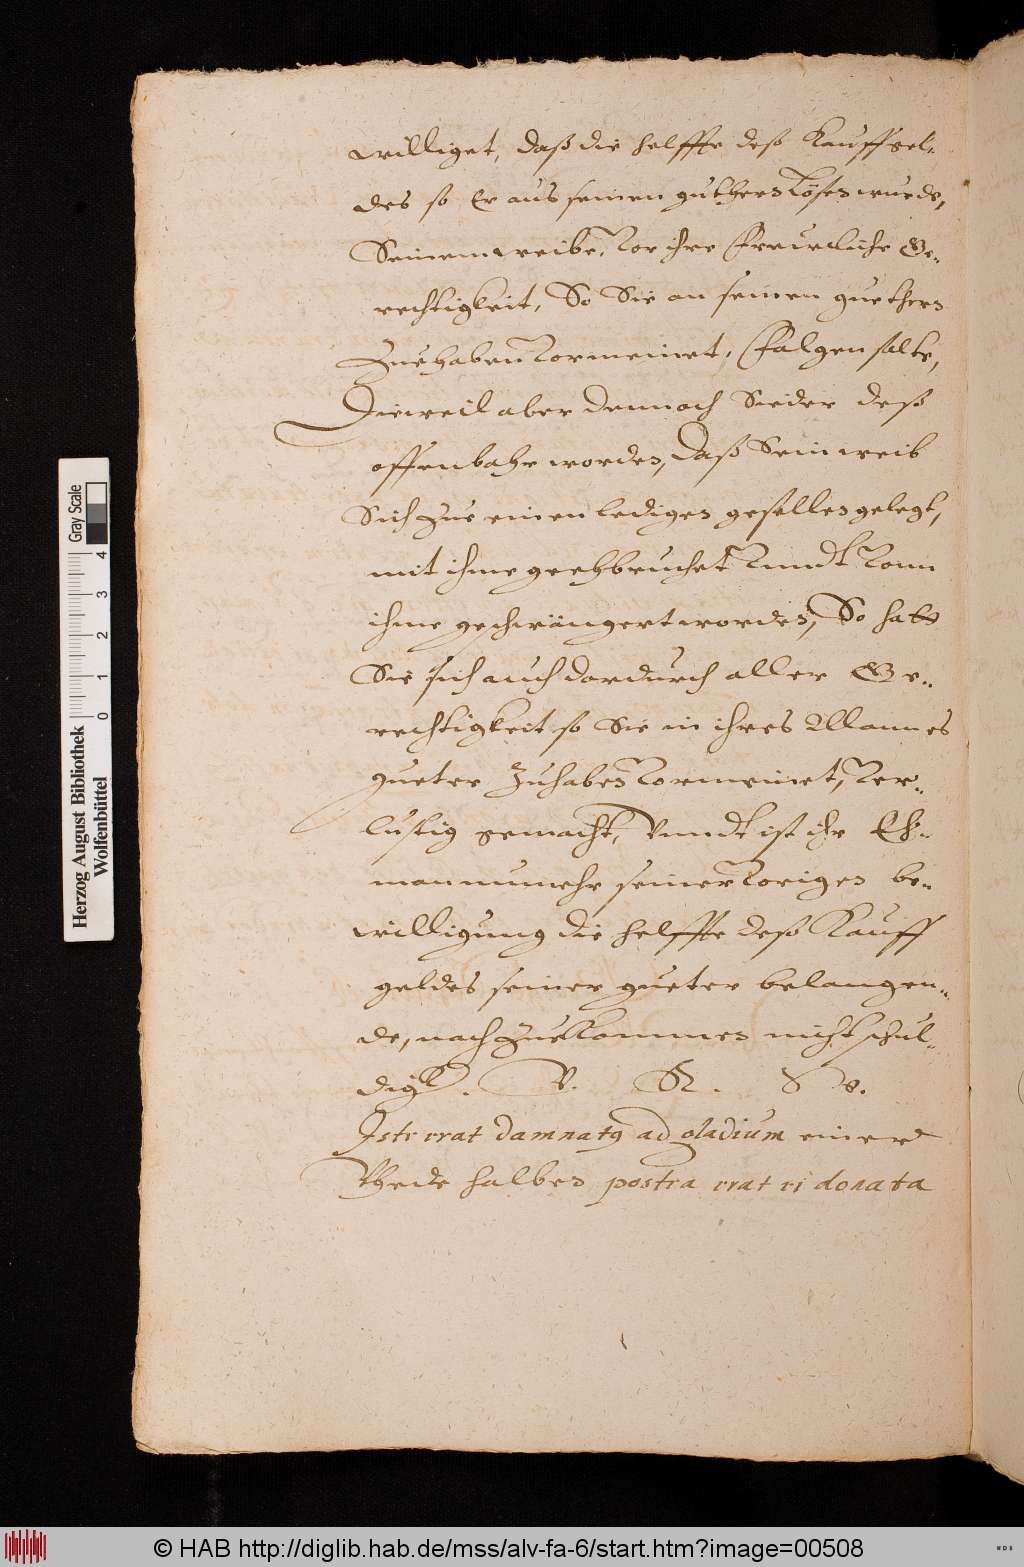 williget, daß die helffte deß Kauffgel-
des so Er aus seinen guthern Lösen wurde,
Seinem weibe, vor ihre Frewliche Ge-
rechtigkeit, So Sie an seinen guethern
Zue haben vormeinet, Folgen solte,
Dieweil aber dennoch Sieder deß
offenbahr worden, daß Sein weib
Sich zue einen ledigen gesellen gelegt,
mit ihme geehbruchet vnndt vonn
ihme geschwängert worden, So hatt
Sie sich auch dardurch aller Ge-
rechtigkeit so Sie in ihres Mannes
gueter Zuhaben vormeinet, ver-
lustig gemacht, Vnndt ist ihr Eh-
man nunmehr seiner vorigen be-
willigung die helffte deß Kauff
geldes seiner gueter belangen-
de, nach zue kommen nicht schul-
digk. V. R. W.
Iste erat damnatus ad gladium einer
Vhede halben postea erat ei donata
Herzog August Bibliothek
Wolfenbüttel
0 1 2 3 4
Gray Scale
© HAB http://diglib.hab.de/mss/alv-fa-6/start.htm?image=00508